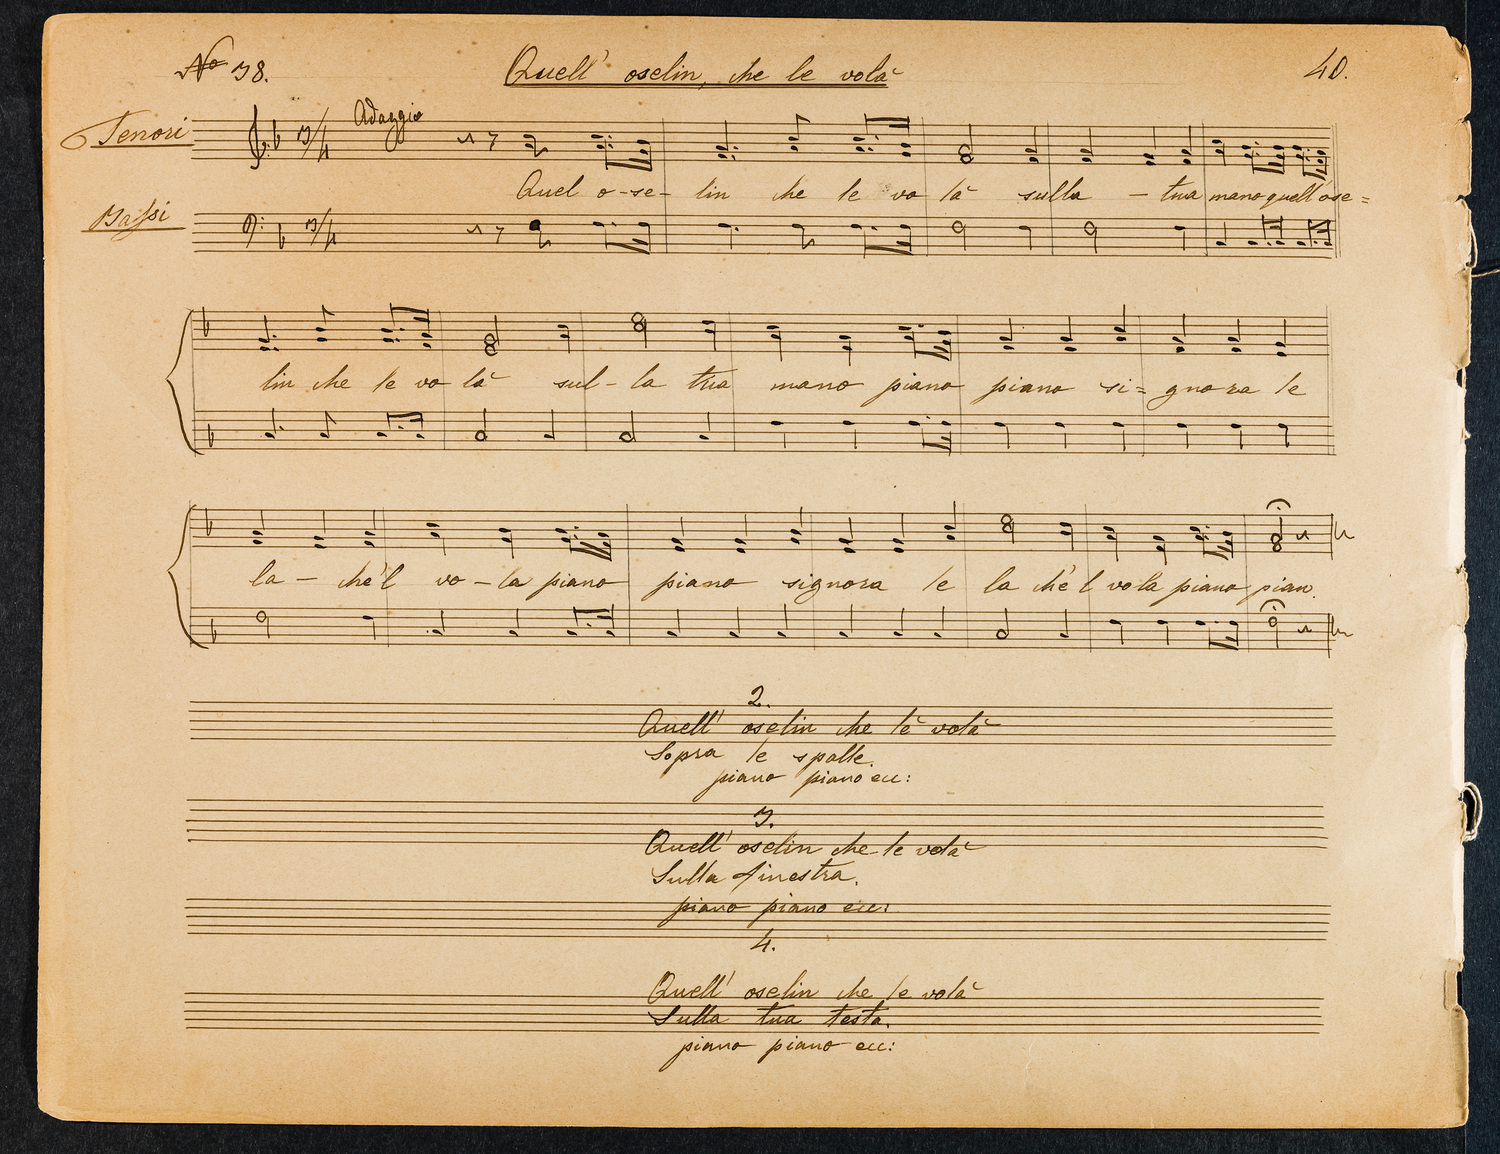 No 38.
Quell' oselin, che le volà
40.
Tenori
Adaggio
3/4
Quel o-se-lin che le vo là sulla - tua mano quell' ose=
Bassi
3/4
lin che le vo là sul-la tua mano piano piano si= gnora le
la - che'l vo-la piano piano signora le la che'l vola piano pian.
2.
Quell' oselin che lè volà
Sopra le spalle.
piano piano ecc:
3.
Quell' oselin che le volà
Sulla finestra.
piano piano ecc:
4.
Quell' oselin che le volà
Sulla tua testa.
piano piano ecc: